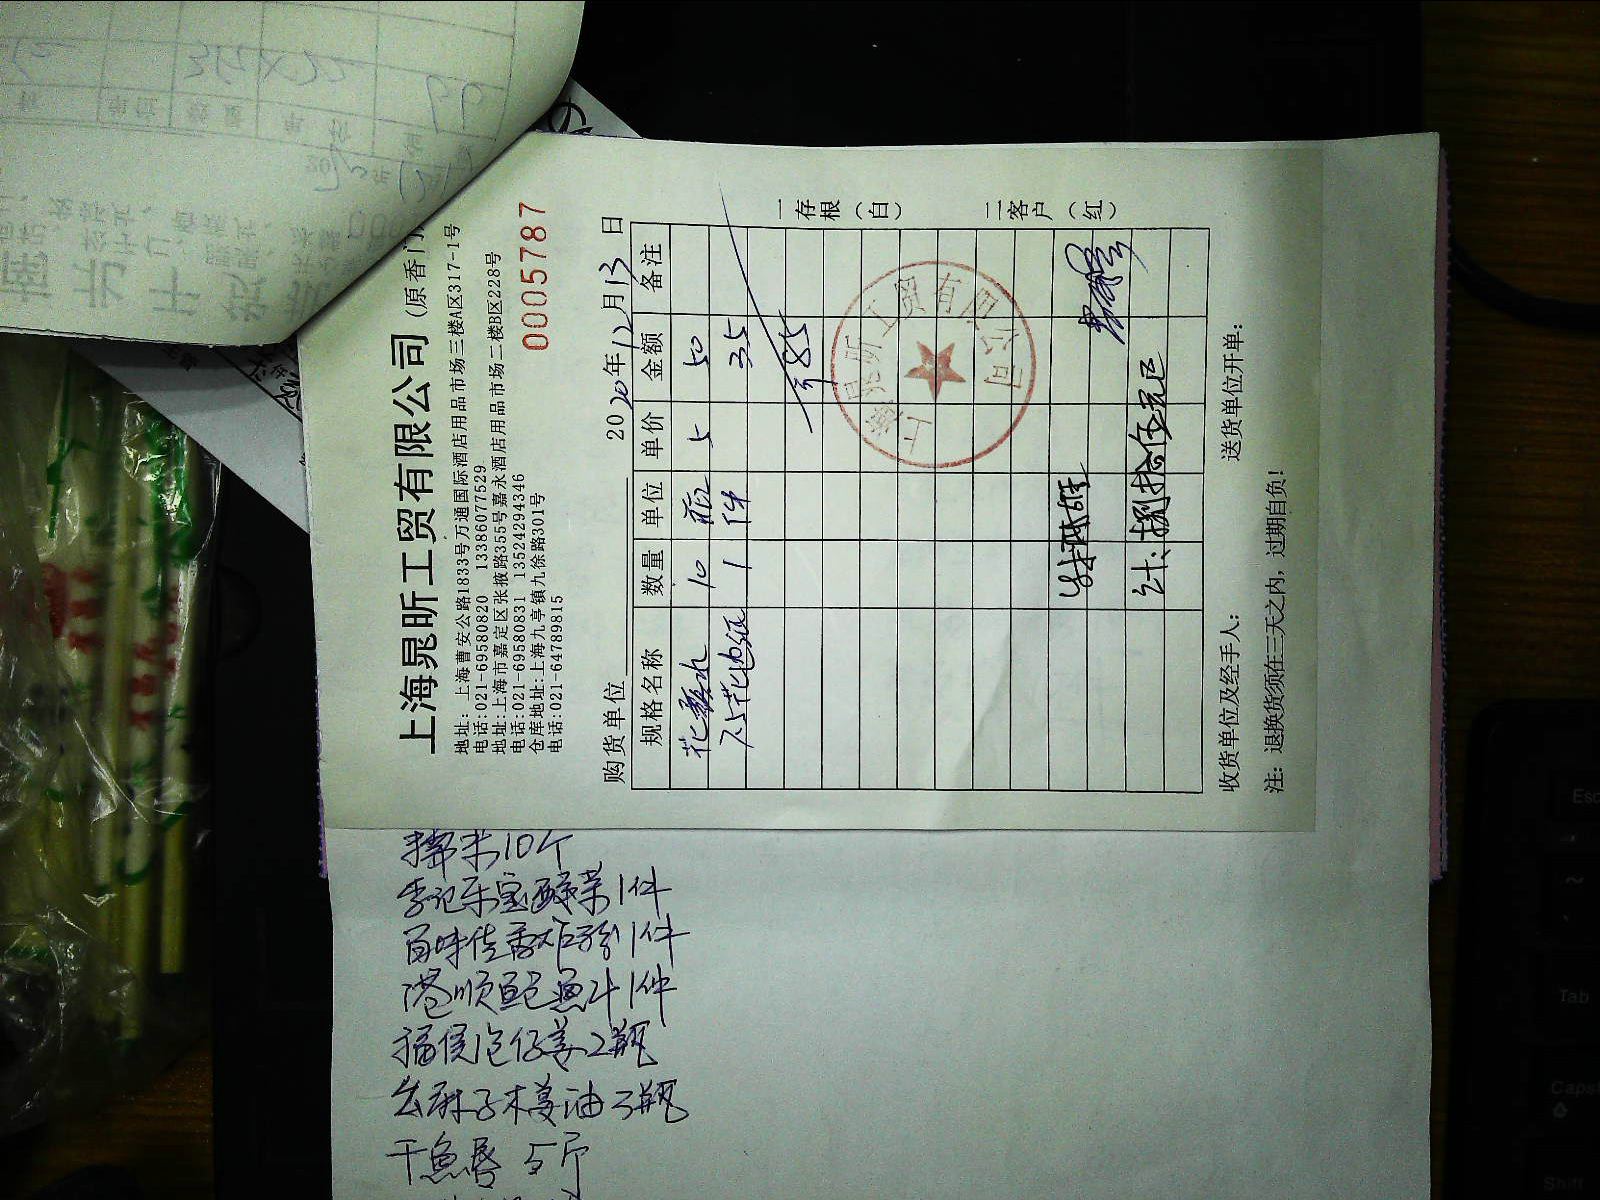 上海晁昕工贸有限公司(原香门
地址:上海曹安公路1833号万通国际酒店用品市场三楼A区317-1号
电话:021-69580820 13386077529
地址:上海市嘉定区张掖路355号嘉永酒店用品市场二楼B区228号
电话:021-69580831 13524294346
仓库地址:上海九亭镇九徐路301号
电话:021-64789815
0005787
购货单位 2020年12月13日
规格名称 数量 单位 单价 金额 备注
花露水 10 瓶 5 50
1 件 35
¥85
上海晁昕工贸有限公司
计:捌拾伍元正
收货单位及经手人: 送货单位开单:
注:退换货须在三天之内,过期自负!
一存根(白)
二客户(红)
10个
李记乐宝酸菜1件
百味佳香炸粉1件
港顺鲍鱼汁1件
泡仔姜2瓶
么麻子木姜油3瓶
干鱼唇 5斤
Esc
Tab
Caps
Shift